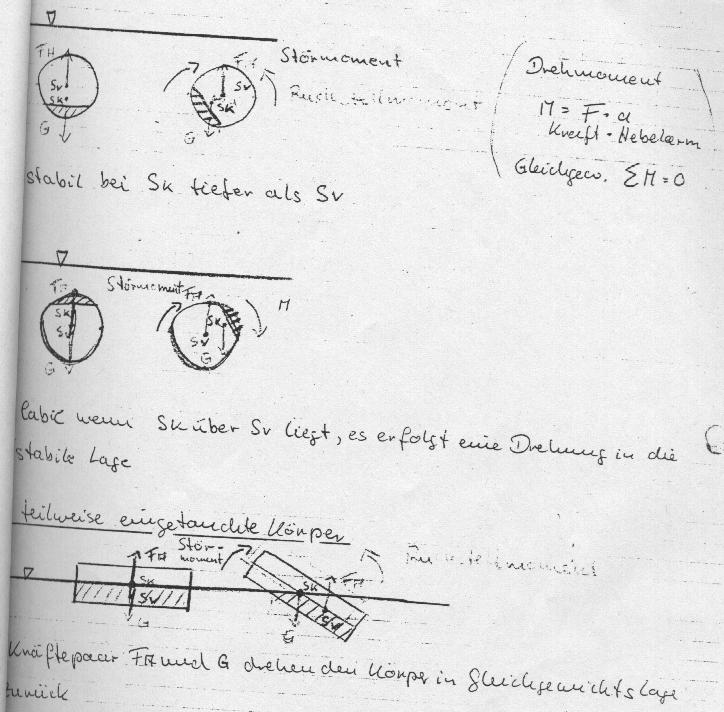 Störmoment
FH
Sv
SK
G
FH
Sv
SK
G
Rückstellmoment
Drehmoment
M = F · a
Kraft · Hebelarm
Gleichgew. ΣM = 0
stabil bei SK tiefer als Sv
Störmoment
FH
SK
Sv
G
FH
SK
Sv
G
M
labil wenn SK über Sv liegt, es erfolgt eine Drehung in die
stabile Lage
teilweise eingetauchte Körper
FH
SK
Sv
G
Stör-
moment
Rückstellmoment
SK
FH
Sv
G
Kräftepaar FH und G drehen den Körper in Gleichgewichtslage
zurück